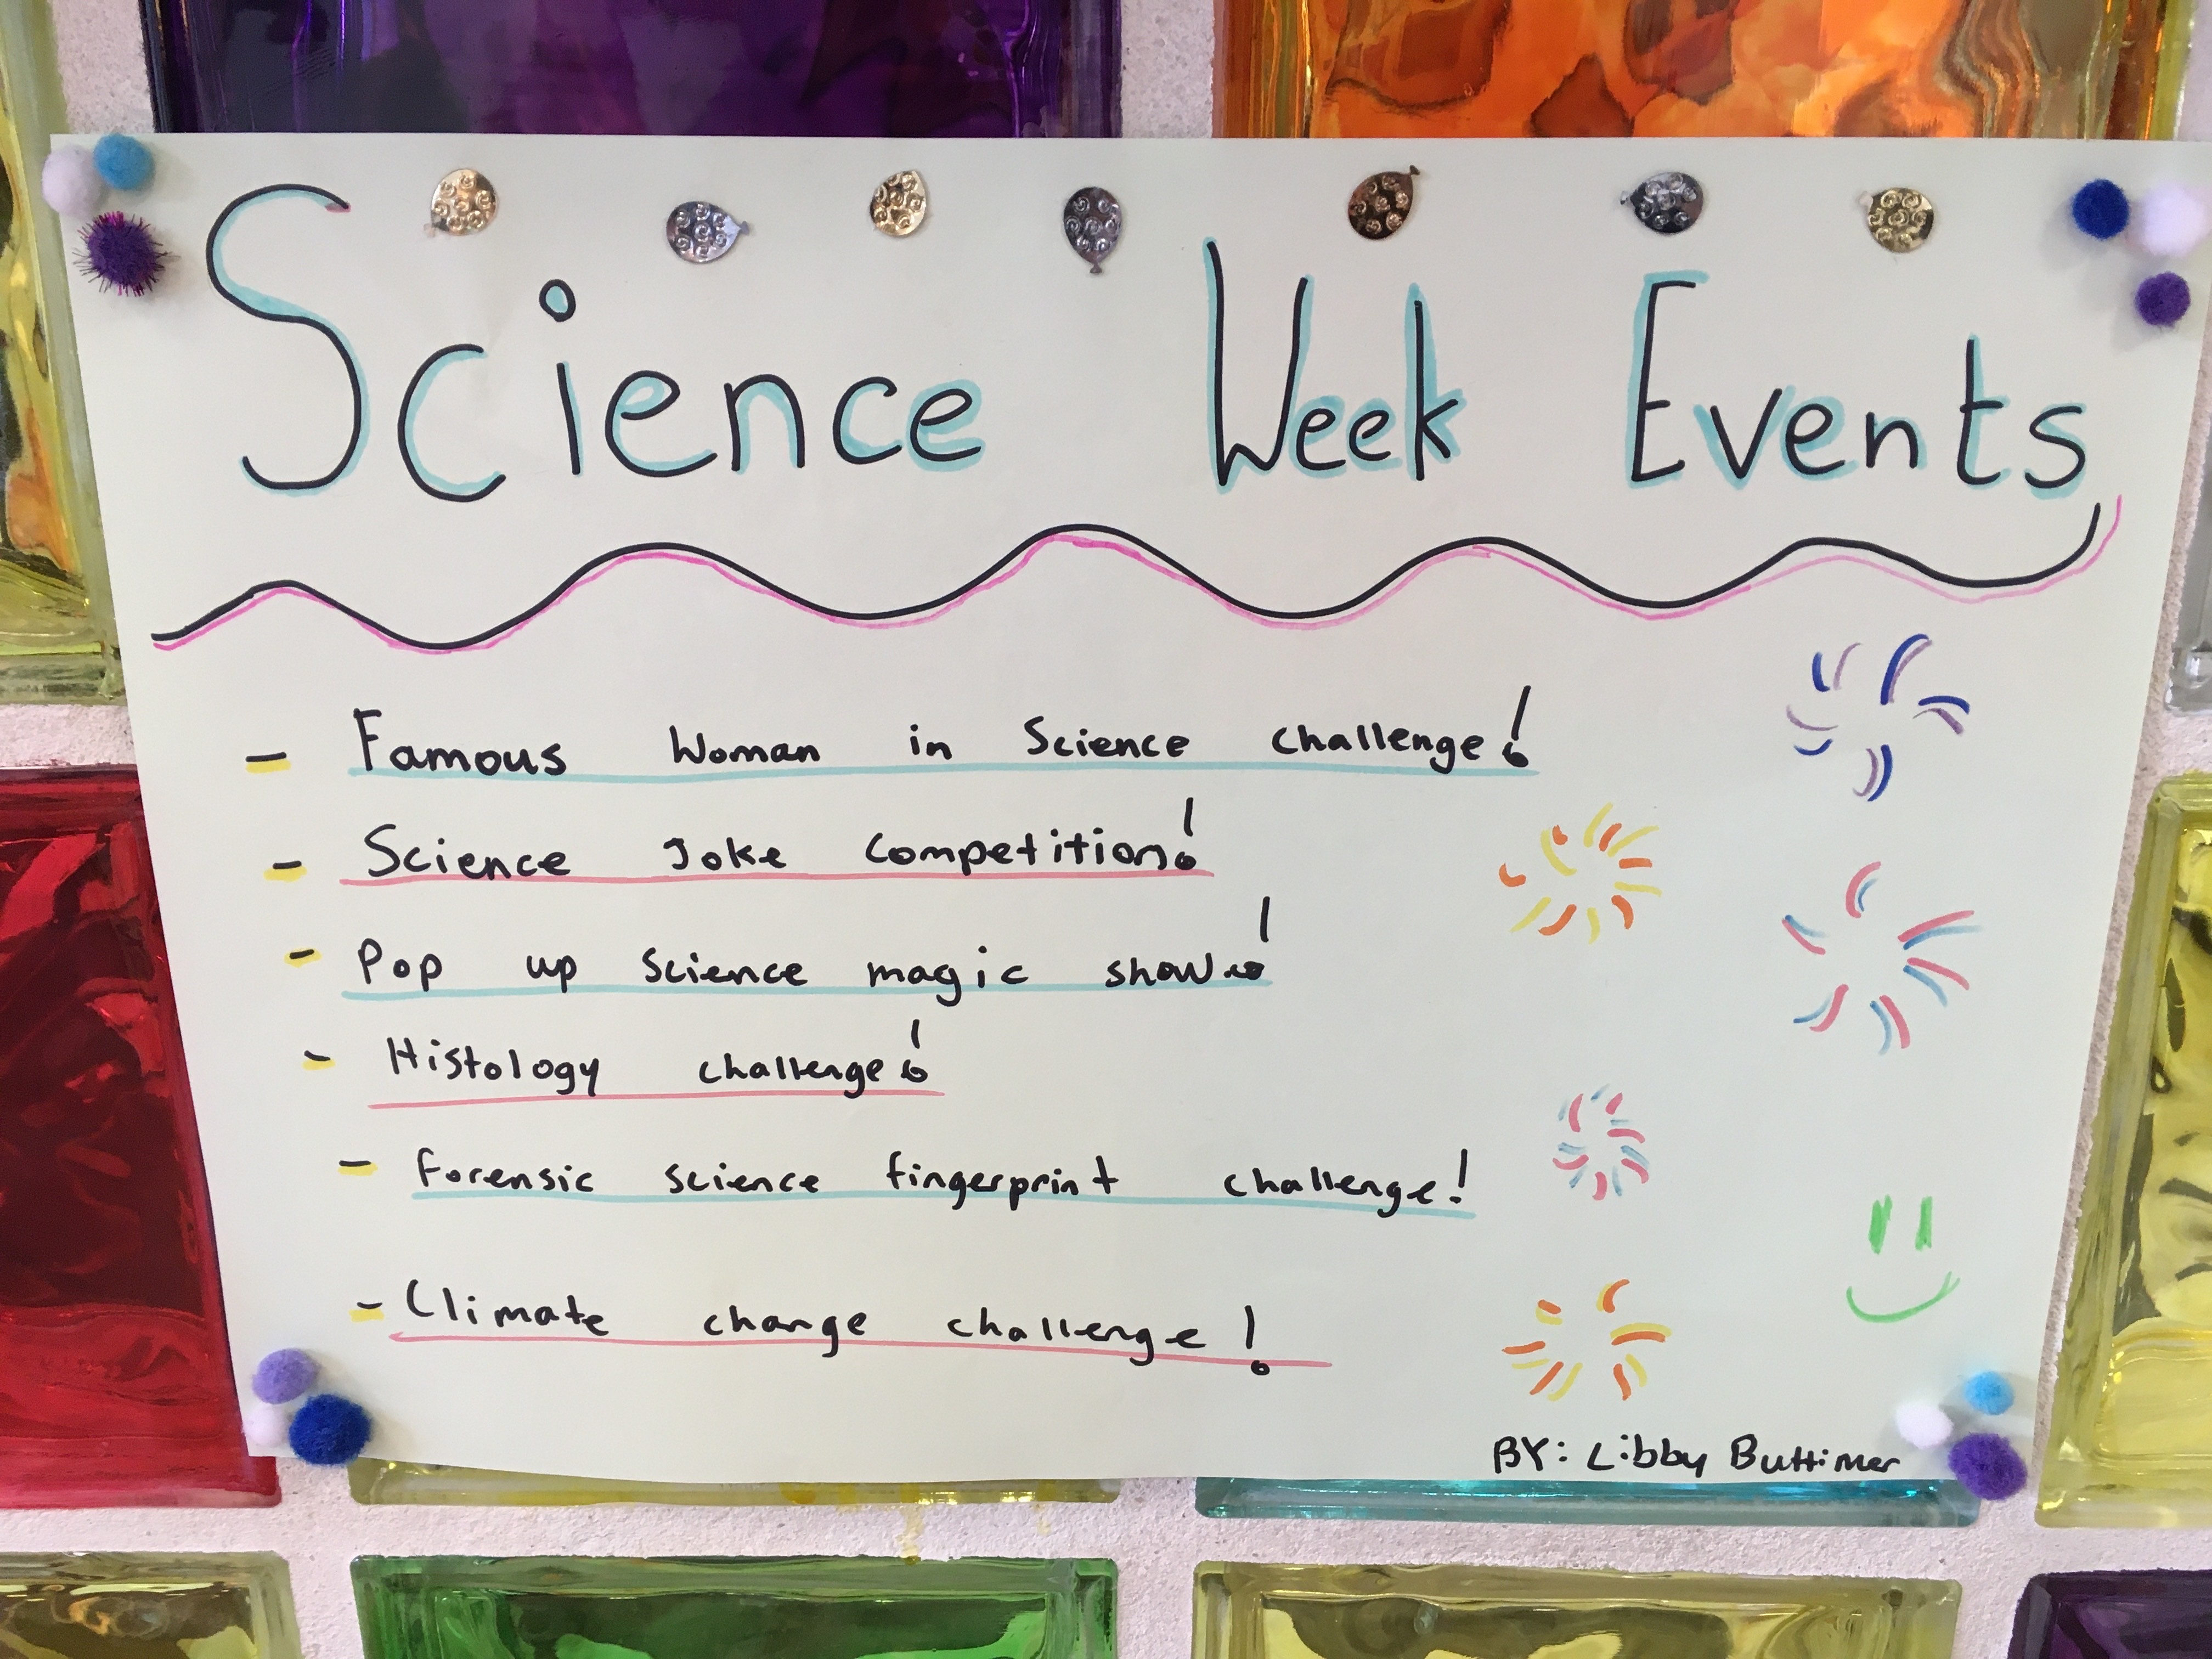 Science Week Events
- Famous Woman in Science challenge!
- Science Joke Competition!
- Pop up Science magic show!
- Histology challenge!
- Forensic science fingerprint challenge!
- Climate change challenge!
BY: Libby Buttimer